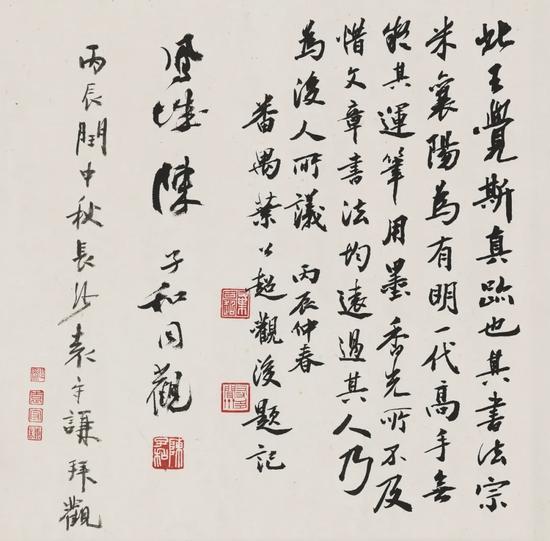 此王覺斯真跡也其書法宗
米襄陽為有明一代高手無
疑其運筆用墨香光所不及
惜文章書法均遠過其人乃
為後人所議 丙辰仲春
番禺葉公超觀後題記
陳子和同觀
陳子和
丙辰閏中秋長沙袁守謙拜觀